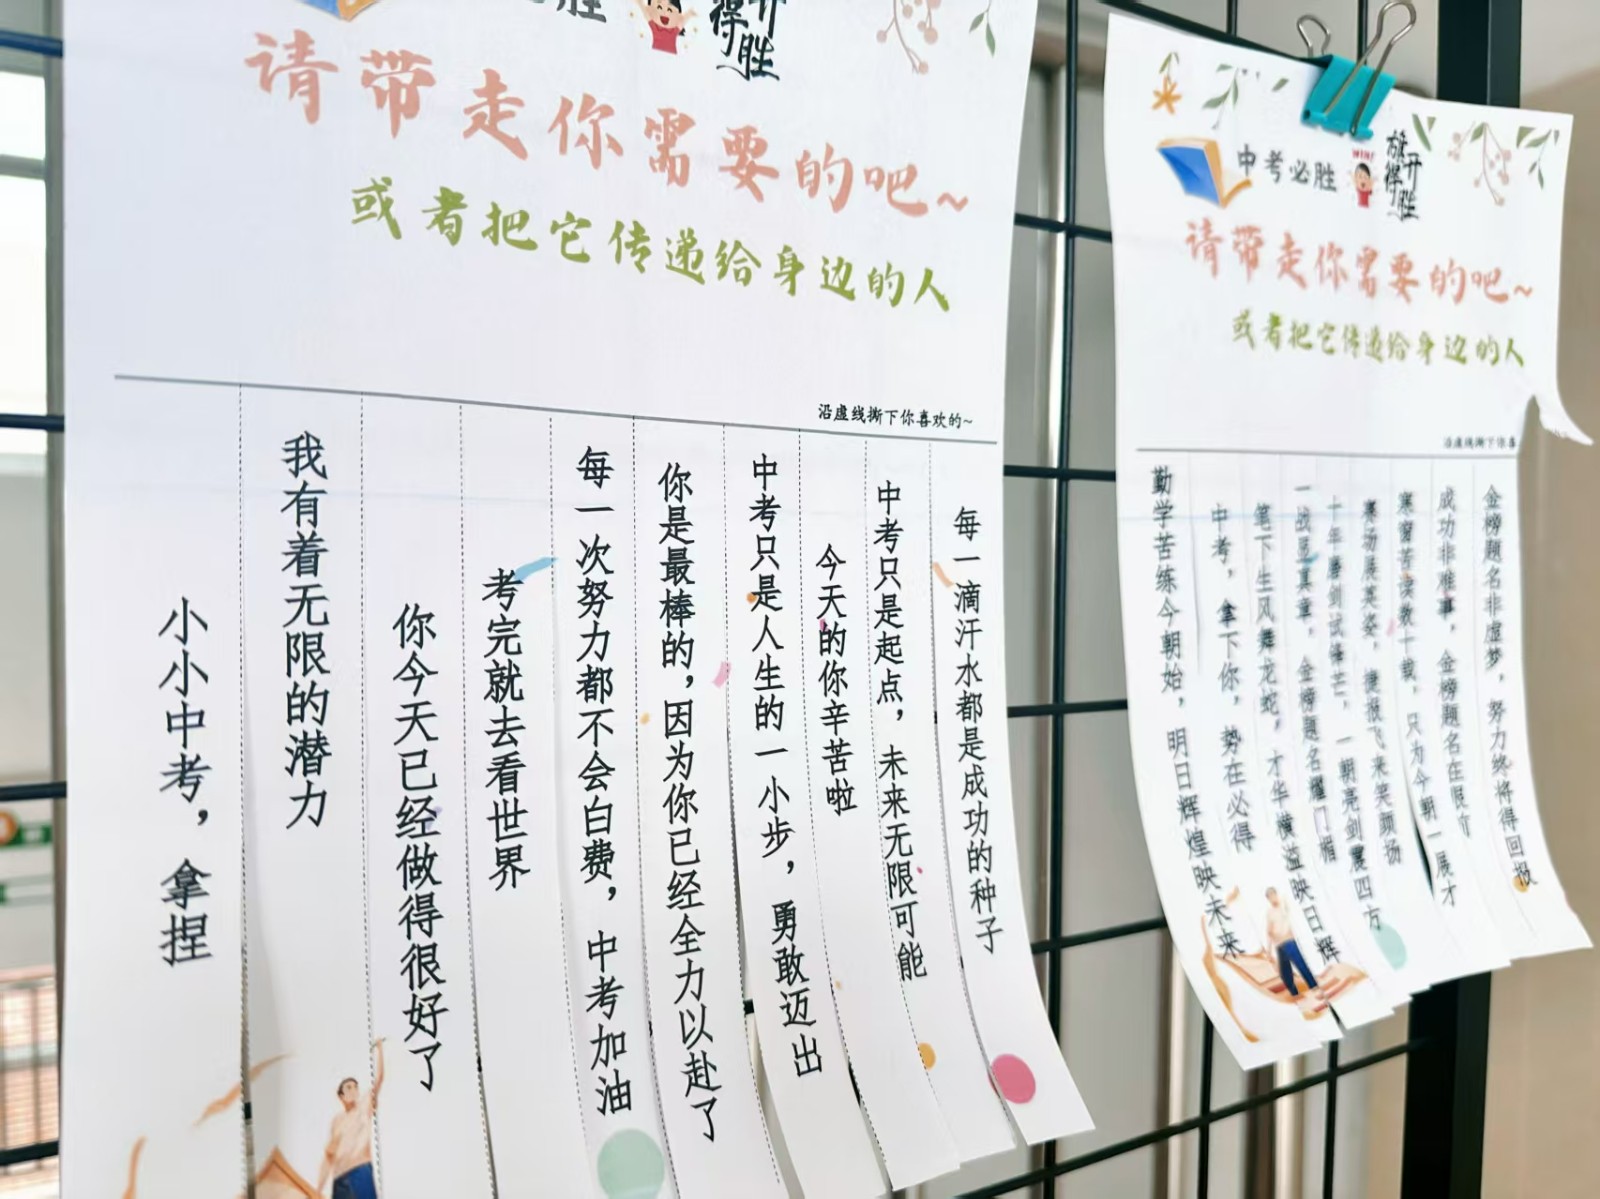 胜
得开
胜
请带走你需要的吧~
或者把它传递给身边的人
沿虚线撕下你喜欢的~
小小中考，拿捏
我有着无限的潜力
你今天已经做得很好了
考完就去看世界
每一次努力都不会白费，中考加油
你是最棒的，因为你已经全力以赴了
中考只是人生的一小步，勇敢迈出
今天的你辛苦啦
中考只是起点，未来无限可能
每一滴汗水都是成功的种子
中考必胜
旗开得胜
请带走你需要的吧~
或者把它传递给身边的人
沿虚线撕下你喜
勤学苦练今朝始，明日辉煌映未来
中考，拿下你，势在必得
笔下生风舞龙蛇，才华横溢映日辉
一战显真章，金榜题名耀门楣
十年磨剑试锋芒，一朝亮剑震四方
赛场展英姿，捷报飞来笑颜扬
寒窗苦读数十载，只为今朝一展才
成功非难事，金榜题名在眼前
金榜题名非虚梦，努力终将得回报